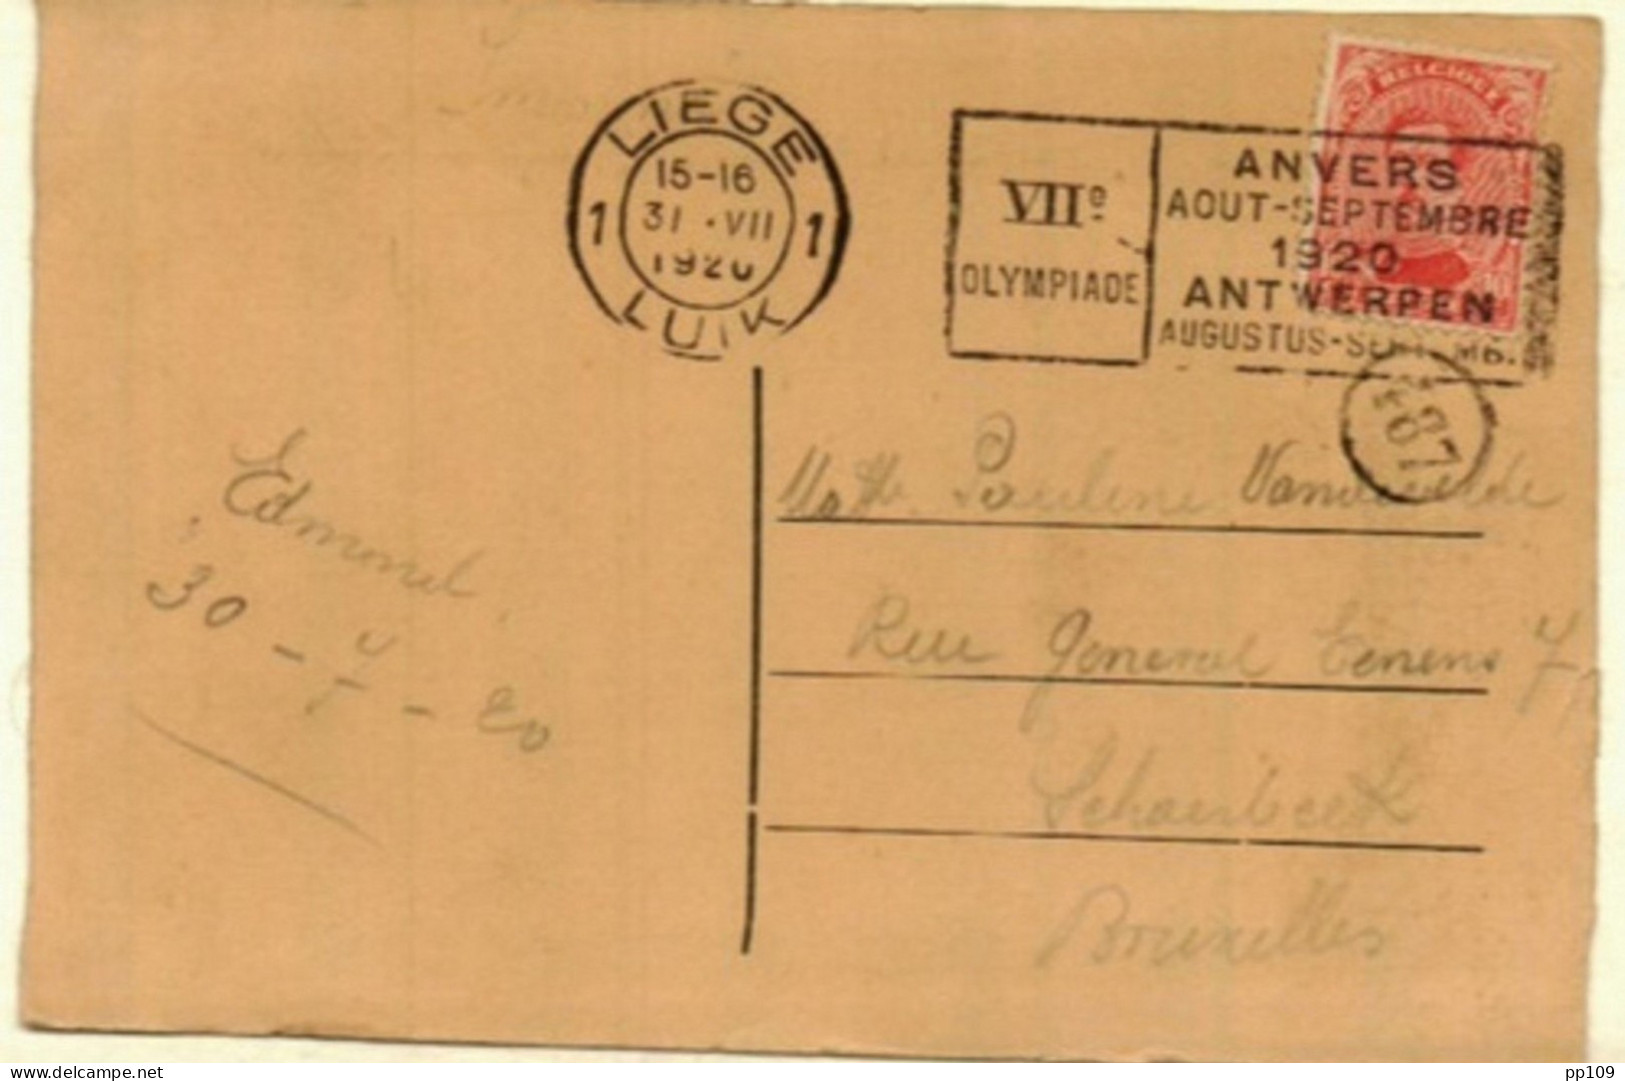 LIEGE
15-16
1 31 .VII 1
1920
LUIK
VIIe
OLYMPIADE
ANVERS
AOUT-SEPTEMBRE
1920
ANTWERPEN
AUGUSTUS-SEPT MB.
BELGIQUE
10
487
Edmond.
30 - 7 - 20
Pauline Vandevelde
Rue General Eenens 7
Schaerbeek
Bruxelles
delcampe.net
pp109